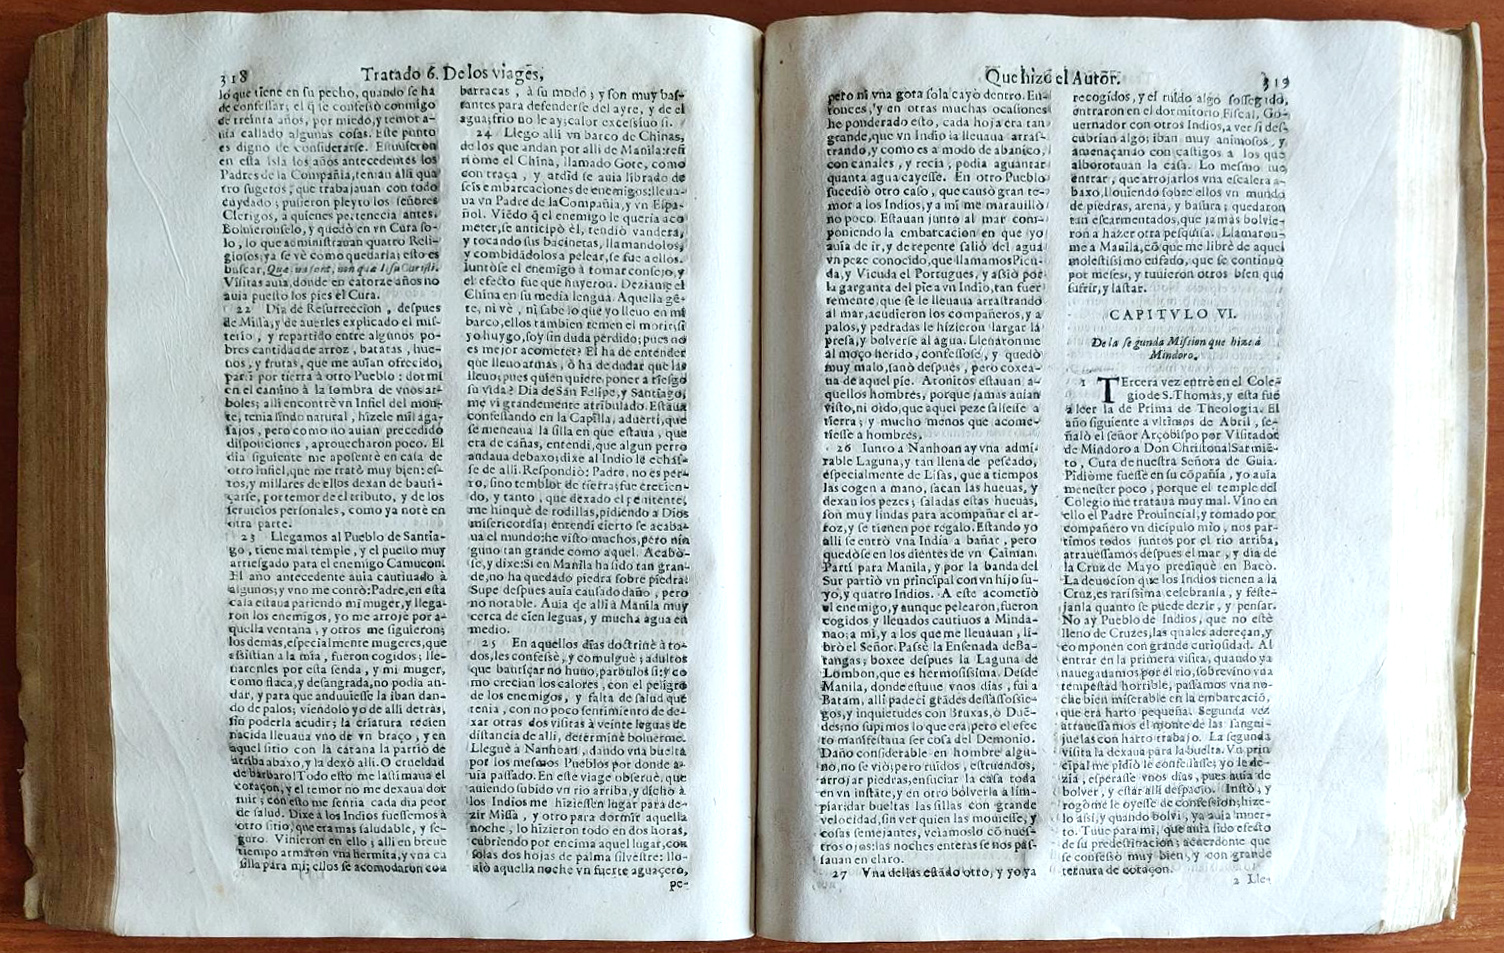 318
Tratado 6. De los viages,
lo que tiene en su pecho, quando se ha
de confessar; el q̃ se confessò conmigo
de treinta años, por miedo, y temor a-
uia callado algunas cosas. Este punto
es digno de considerarse. Estuuieron
en esta Isla los años antecedentes los
Padres de la Compañia, tenian alli qua
tro sugetos, que trabajauan con todo
cuydado; pusieron pleyto los señores
Clerigos, à quienes pertenecia antes.
Boluieronselo, y quedò en vn Cura so-
lo, lo que administrauan quatro Reli-
giosos; ya se vè como quedaria; esto es
buscar, Quæ sua sunt, non quæ Iesu Christi.
Visitas auia, donde en catorze años no
auia puesto los pies el Cura.
22 Dia de Resurreccion, despues
de Missa, y de auerles explicado el mis-
terio, y repartido entre algunos po-
bres cantidad de arroz, batatas, hue-
uos, y frutas, que me auian ofrecido,
parti por tierra à otro Pueblo: dormi
en el camino à la sombra de vnos ar-
boles; alli encontrè vn Infiel del mon-
te, tenia lindo natural, hizele mil aga-
sajos, pero como no auian precedido
disposiciones, aprouecharon poco. El
dia siguiente me aposentè en casa de
otro infiel, que me tratò muy bien: es-
tos, y millares de ellos dexan de bauti-
çarse, por temor de el tributo, y de los
seruicios personales, como ya notè en
otra parte.
23 Llegamos al Pueblo de Santia-
go, tiene mal temple, y el puesto muy
arriesgado para el enemigo Camucon.
El año antecedente auia cautiuado à
algunos; y vno me contò: Padre, en esta
casa estaua pariendo mi muger, y llega-
ron los enemigos, yo me arrojè por a-
quella ventana, y otros me siguieron;
los demas, especialmente mugeres, que
assistian a la mia, fueron cogidos; lle-
uaronles por esta senda, y mi muger,
como flaca, y desangrada, no podia an-
dar, y para que anduuiesse la iban dan-
do de palos; viendolo yo de alli detràs,
sin poderla acudir; la criatura recien
nacida lleuaua vno de vn braço, y en
aquel sitio con la catana la partiò de
arriba abaxo, y la dexò alli. O crueldad
de barbaro! Todo esto me lastimaua el
coraçon, y el temor no me dexaua dor
mir; con esto me sentia cada dia peor
de salud. Dixe à los Indios fuessemos à
otro sitio, que era mas saludable, y se-
guro. Vinieron en ello; alli en breue
tiempo armaron vna hermita, y vna ca
silla para mi; ellos se acomodaron con
barracas, à su modo; y son muy bas-
tantes para defenderse del ayre, y de el
agua; frio no le ay; calor excessiuo si.
24 Llego alli vn barco de Chinas,
de los que andan por alli de Manila: refi
riome el China, llamado Gote, como
con traça, y ardid se auia librado de
seis embarcaciones de enemigos: lleua-
ua vn Padre de la Compañia, y vn Espa-
ñol. Viẽdo q̃ el enemigo le queria aco
meter, se anticipò èl, tendiò vandera,
y tocando sus bacinetas, llamandolos,
y combidádolos a pelear, se fue a ellos.
Iuntòse el enemigo à tomar consejo, y
el efecto fue que huyeron. Deziame el
China en su media lengua. Aquella gẽ-
te, ni vè, ni sabe lo que yo lleuo en mi
barco, ellos tambien temen el morir; si
yo huygo, soy sin duda perdido; pues no
es mejor acometer? El ha de entender
que lleuo armas, ò ha de dudar que las
lleuo; pues quien quiere poner a riesgo
su vida? Dia de San Felipe, y Santiago,
me vi grandemente atribulado. Estaua
confessando en la Capilla, aduertì, que
se meneaua la silla en que estaua, que
era de cañas, entendi, que algun perro
andaua debaxo; dixe al Indio le echas-
se de alli. Respondiò: Padre, no es per-
ro, sino temblor de tierra; fue crecien-
do, y tanto, que dexado el penitente,
me hinquè de rodillas, pidiendo a Dios
misericordia; entendi cierto se acaba-
ua el mundo: he visto muchos, pero nin
guno tan grande como aquel. Acabò-
se, y dixe: Si en Manila ha sido tan gran-
de, no ha quedado piedra sobre piedra:
Supe despues auia causado daño, pero
no notable. Auia de alli à Manila muy
cerca de cien leguas, y mucha agua en
medio.
25 En aquellos dias doctrinè à to-
dos, les confessè, y comulguè; adultos
que bautiçar no huuo, parbulos si: y co
mo crecian los calores, con el peligro
de los enemigos, y falta de salud que
tenia, con no poco sentimiento de de-
xar otras dos visitas à veinte leguas de
distancia de alli, determinè boluerme.
Lleguè à Nanhoan, dando vna buelta
por los mesmos Pueblos por donde a-
uia passado. En este viage obseruè, que
auiendo subido vn rio arriba, y dicho à
los Indios me hiziessen lugar para de-
zir Missa, y otro para dormir aquella
noche, lo hizieron todo en dos horas,
cubriendo por encima aquel lugar, con
solas dos hojas de palma silvestre: llo-
uiò aquella noche vn fuerte aguaçero,
pe-
Que hizo el Autor.
319
pero ni vna gota sola cayò dentro. En-
tonces, y en otras muchas ocasiones
he ponderado esto, cada hoja era tan
grande, que vn Indio la lleuaua arras-
trando, y como es a modo de abanico,
con canales, y recia, podia aguantar
quanta agua cayesse. En otro Pueblo
sucediò otro caso, que causò gran te-
mor a los Indios, y a mi me marauillò
no poco. Estauan junto al mar com-
poniendo la embarcacion en que yo
auia de ir, y de repente saliò del agua
vn peze conocido, que llamamos Picu-
da, y Vicuda el Portugues, y assiò por
la garganta del pie a vn Indio, tan fuer
temente, que se le lleuaua arrastrando
al mar, acudieron los compañeros, y a
palos, y pedradas le hizieron largar la
presa, y bolverse al agua. Lleuaronme
al moço herido, confessose, y quedò
muy malo, sanò despues, pero coxea-
ua de aquel pie. Atonitos estauan a-
quellos hombres, porque jamàs auian
visto, ni oìdo, que aquel peze saliesse a
tierra; y mucho menos que acome-
tiesse a hombres.
26 Iunto a Nanhoan ay vna admi-
rable Laguna, y tan llena de pescado,
especialmente de Lisas, que a tiempos
las cogen a mano, sacan las hueuas, y
dexan los pezes; saladas estas hueuas,
son muy lindas para acompañar el ar-
roz, y se tienen por regalo. Estando yo
alli se entrò vna India a bañar, pero
quedòse en los dientes de vn Caiman.
Parti para Manila, y por la banda del
Sur partiò vn principal con vn hijo su-
yo, y quatro Indios. A este acometiò
el enemigo, y aunque pelearon, fueron
cogidos y lleuados cautiuos a Minda-
nao; a mi, y a los que me lleuauan, li-
brò el Señor. Passè la Ensenada de Ba-
tangas; boxee despues la Laguna de
Lombon, que es hermosissima. Desde
Manila, donde estuue vnos dias, fui a
Batam, alli padeci grãdes dessassossie-
gos, y inquietudes con Bruxas, ò Duẽ-
des; no supimos lo que era; pero el efec
to manifestaua ser cosa del Demonio.
Daño considerable en hombre algu-
no, no se viò; pero ruìdos, estruendos,
arrojar piedras, ensuciar la casa toda
en vn instãte, y en otro bolverla a lim-
piar: dar bueltas las sillas con grande
velocidad, sin ver quien las mouiesse, y
cosas semejantes, veiamoslo cõ nues-
tros ojos: las noches enteras se nos pas-
sauan en claro.
27 Vna dellas estãdo otro, y yo ya
recogidos, y el ruìdo algo sossegido,
entraron en el dormitorio Fiscal, Go-
uernador con otros Indios, a ver si des-
cubrian algo; iban muy animosos, y
amenaçando con castigos a los que
alborotauan la casa. Lo mesmo fue
entrar, que arrojarlos vna escalera a-
baxo, llouiendo sobre ellos vn mundo
de piedras, arena, y basura; quedaron
tan escarmentados, que jamàs bolvie-
ron a hazer otra pesquisa. Llamaron-
me a Manila, cõ que me librè de aquel
molestissimo enfado, que se continuò
por meses, y tuuieron otros bien que
sufrir, y lastar.
CAPITVLO VI.
De la segunda Mission que hize à
Mindoro.
1 TErcera vez entrè en el Cole-
gio de S. Thomàs, y esta fuè
a leer la de Prima de Theologia. El
año siguiente a vltimos de Abril, se-
ñalò el señor Arçobispo por Visitador
de Mindoro a Don Christoual Sarmiẽ-
to, Cura de nuestra Señora de Guia.
Pidiome fuesse en su cõpañia, yo auia
menester poco, porque el temple del
Colegio me trataua muy mal. Vino en
ello el Padre Prouincial, y tomado por
compañero vn dicipulo mio, nos par-
timos todos juntos por el rio arriba,
atrauessamos despues el mar, y dia de
la Cruz de Mayo prediquè en Bacò.
La deuocion que los Indios tienen a la
Cruz, es rarissima, celebranla, y feste-
janla quanto se puede dezir, y pensar.
No ay Pueblo de Indios, que no estè
lleno de Cruzes, las quales adereçan, y
componen con grande curiosidad. Al
entrar en la primera visita, quando ya
nauegauamos por el rio, sobrevino vna
tempestad horrible, passamos vna no-
che bien miserable en la embarcaciõ,
que era harto pequeña. Segunda vez
atrauessamos el monte de las sangui-
juelas con harto trabajo. La segunda
visita la dexaua para la buelta. Vn prin
cipal me pidiò le confessasse; yo le de-
zia, esperasse vnos dias, pues auia de
bolver, y estàr alli despacio. Instò, y
rogòme le oyesse de confession; hize-
lo assi, y quando bolvì, ya auia muer-
to. Tuue para mi, que auia sido efecto
de su predestinacion; acuerdome que
se confessò muy bien, y con grande
ternura de coraçon.
2 Lle-